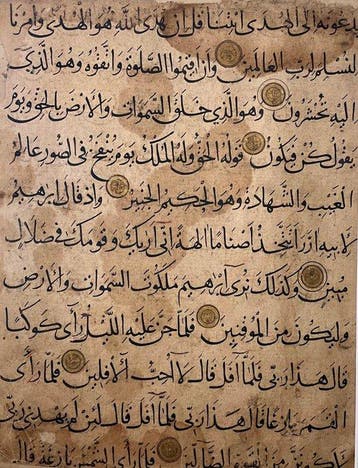 يدعونه الى الهدى ائتنا قل ان هدى الله هو الهدى وامرنا
لنسلم لرب العالمين وان اقيموا الصلوة واتقوه وهو الذي
اليه تحشرون وهو الذي خلق السموات والارض بالحق ويوم
يقول كن فيكون قوله الحق وله الملك يوم ينفخ في الصور عالم
الغيب والشهادة وهو الحكيم الخبير واذ قال ابرهيم
لابيه ازر اتتخذ اصناما الهة اني اريك وقومك في ضلال
مبين وكذلك نري ابرهيم ملكوت السموات والارض
وليكون من الموقنين فلما جن عليه الليل رأى كوكبا
قال هذا ربي فلما افل قال لا احب الافلين فلما رأى
القمر بازغا قال هذا ربي فلما افل قال لئن لم يهدني ربي
لاكونن من القوم الضالين فلما رأى الشمس بازغة قال